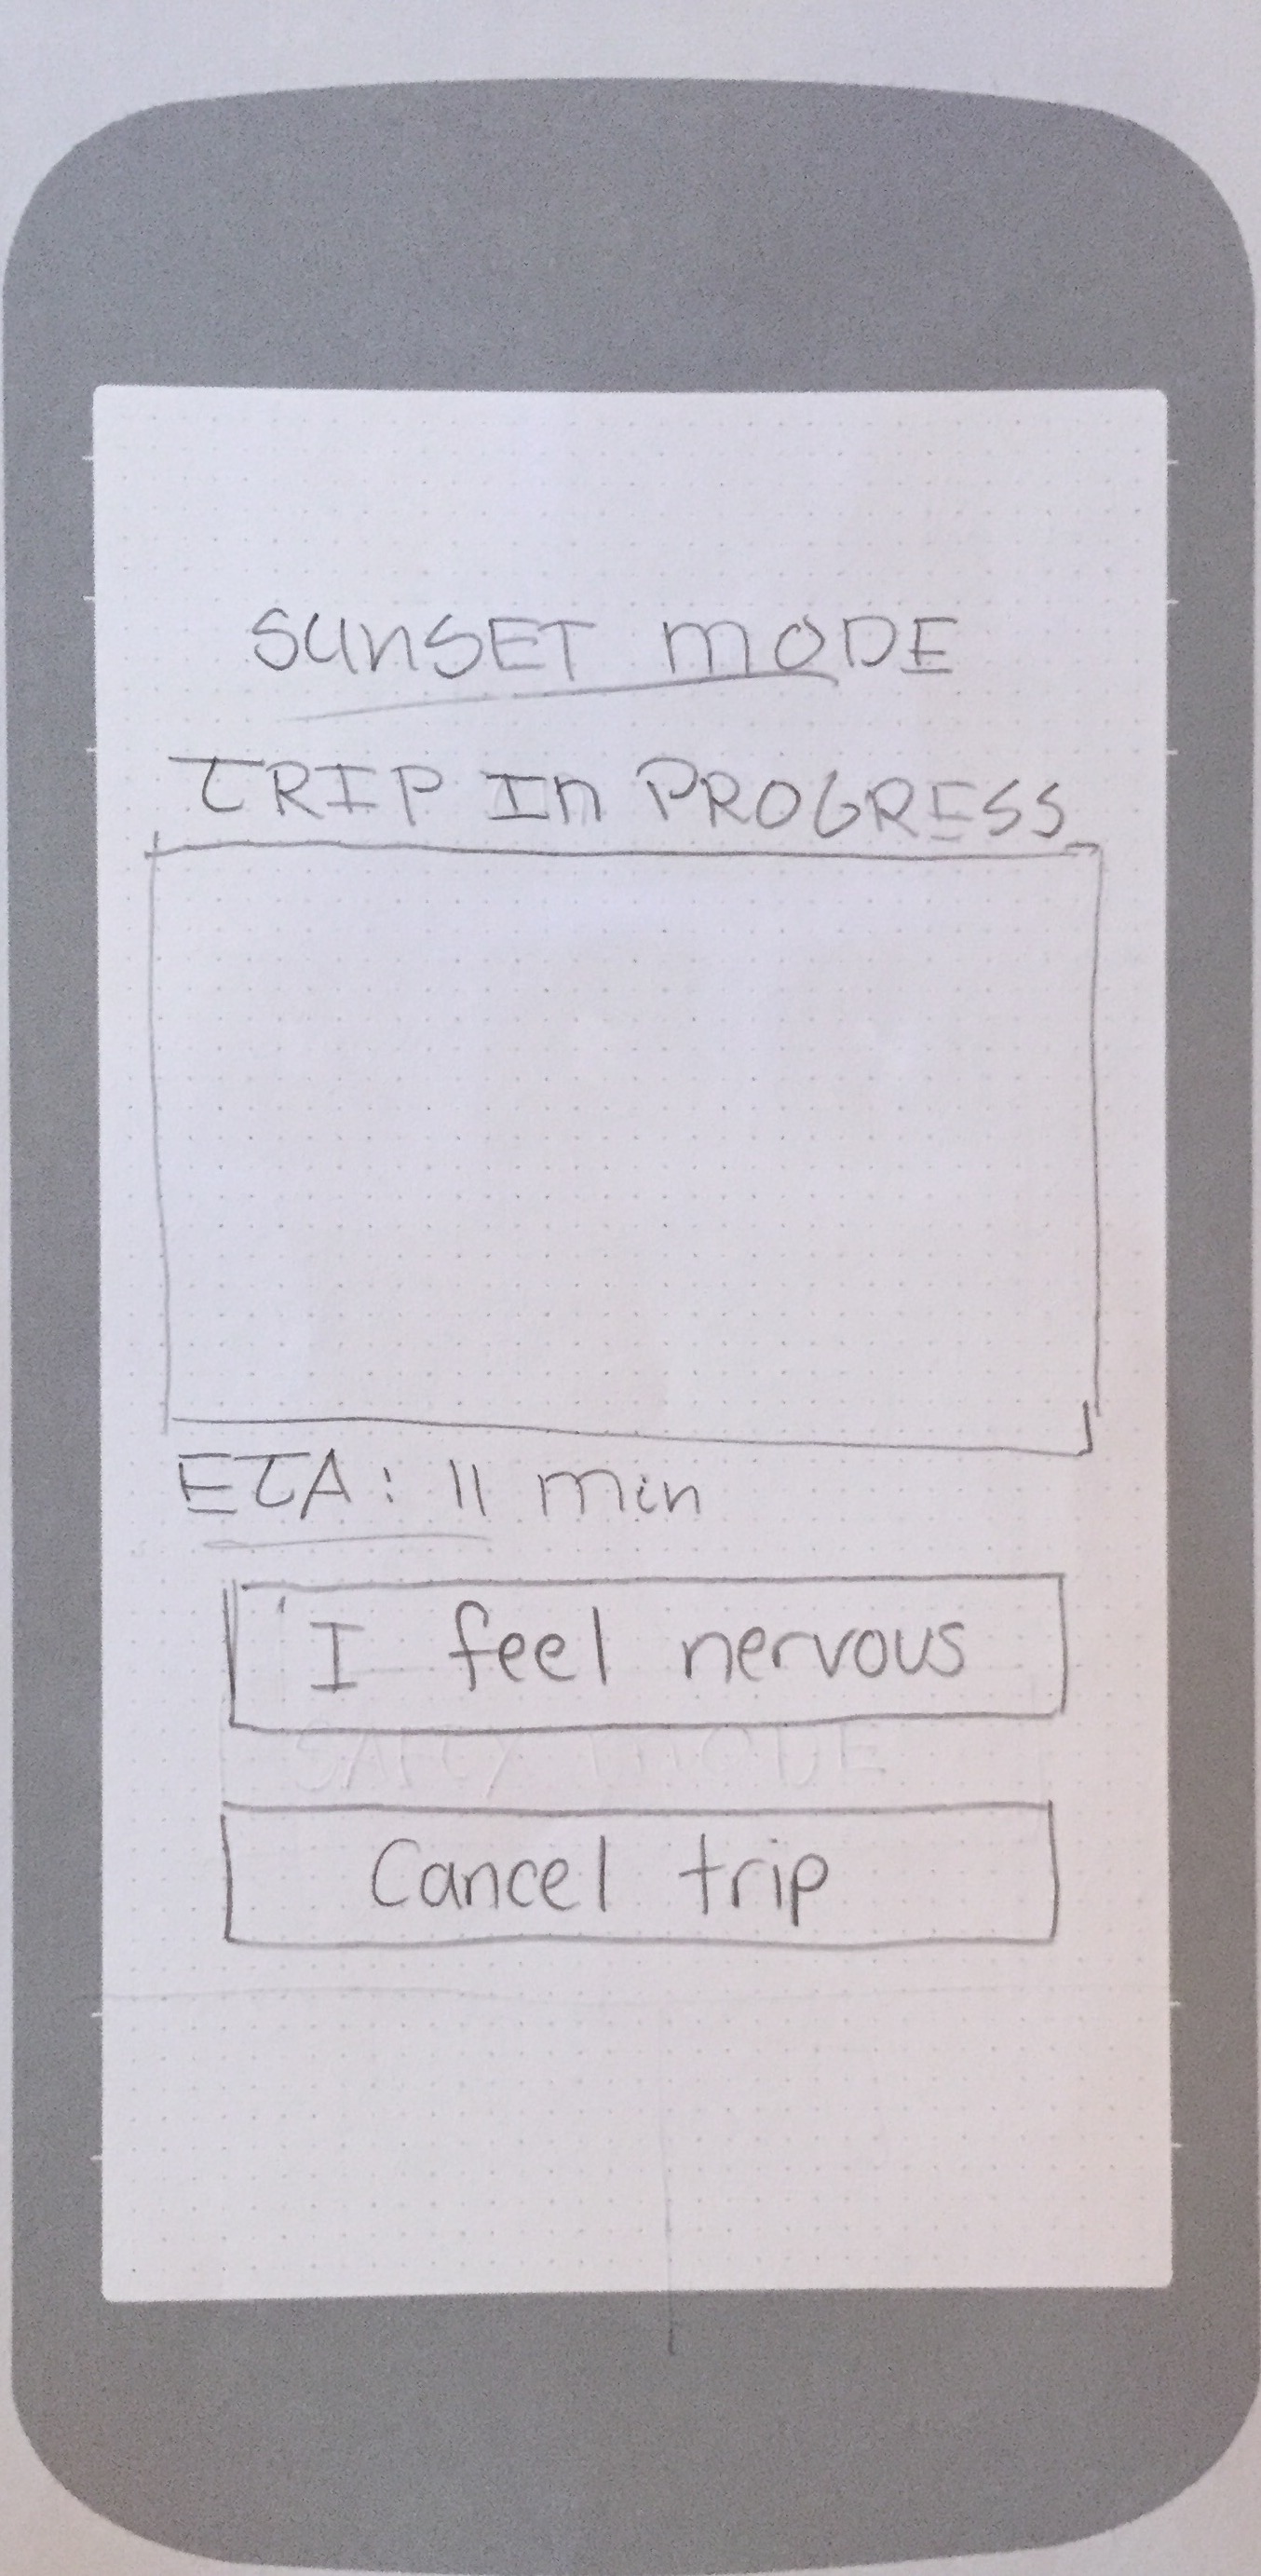 SUNSET MODE
TRIP IN PROGRESS
ETA: 11 min
I feel nervous
Cancel trip